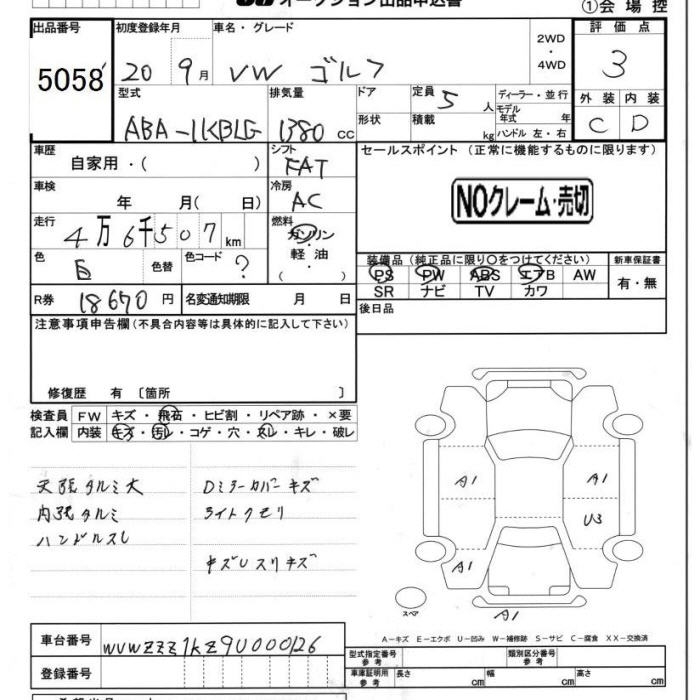 オークション出品申込書
①会場控
出品番号 初度登録年月 車名・グレード 2WD・4WD 評価点
5058 20 9月 VW ゴルフ 3
型式 排気量 ドア 定員 5 人 ディーラー・並行 外装 内装
形状 積載 kg モデル年式 年 ハンドル 左・右
ABA-1KBLG 1380 cc C D
車歴 自家用・( ) シフト FAT セールスポイント (正常に機能するものに限ります)
車検 年 月( 日) 冷房 AC
NOクレーム・売切
走行 4万6千507km 燃料 ガソリン・軽油・( )
色 白 色替 色コード ?
装備品 (純正品に限り○をつけてください) 新車保証書
PS PW ABS エアB AW 有・無
SR ナビ TV カワ
R券 18670円 名変通知期限 月 日
後日品
注意事項申告欄 (不具合内容等は具体的に記入して下さい)
修復歴 有 〔箇所 〕
検査員 FW キズ・飛石・ヒビ割・リペア跡・×要
記入欄 内装 キズ・汚レ・コゲ・穴・スレ・キレ・破レ
天張タルミ大 Dミラーカバーキズ
内張タルミ ライトクモリ
ハンドルスレ
キズUスリキズ
A1 A1
U3
A1 A1
スペア
A-キズ E-エクボ U-凹み W-補修跡 S-サビ C-腐食 XX-交換済
車台番号 WVWZZZ1KZ9U000126
型式指定番号 参考 類別区分番号 参考
登録番号 車庫証明用 参考 長さ cm 幅 cm 高さ cm